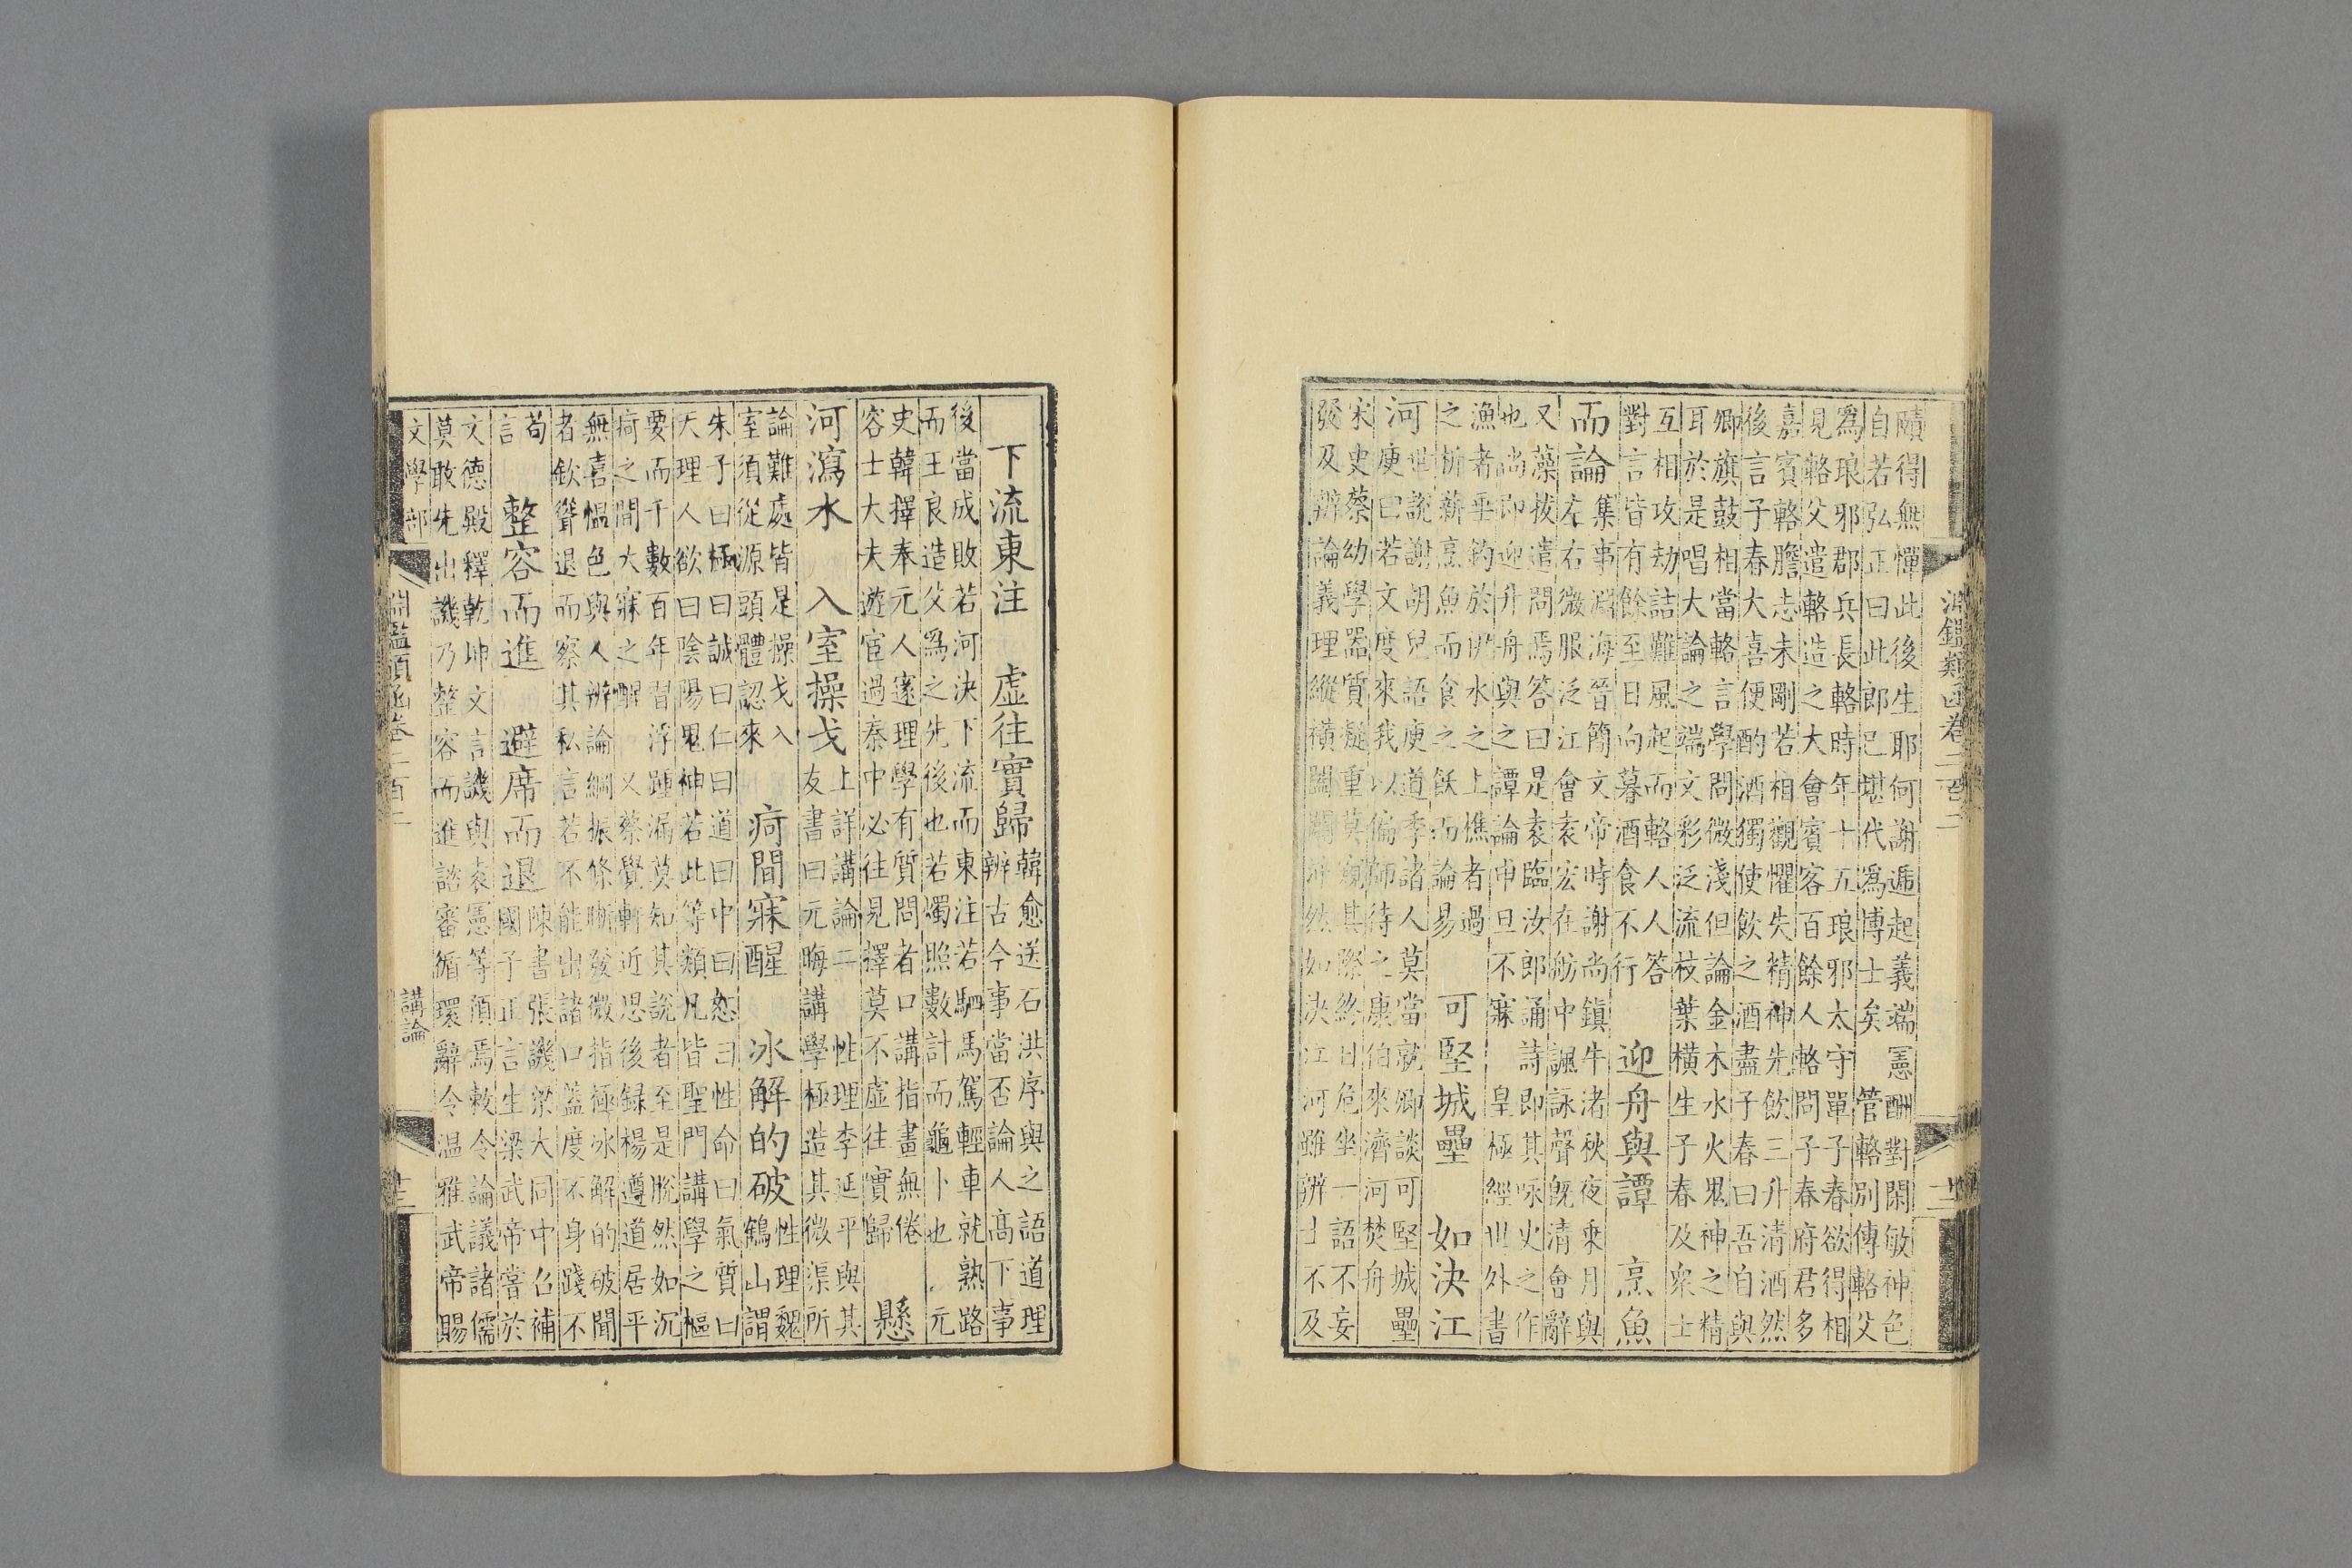 淵鑑類函卷二百二
十二
賾得無憚此後生耶何謝遁起義端憲酬對閑敏神色
自若弘正曰此郎已堪代爲博士矣　管輅別傳輅父
爲琅邪郡兵長輅時年十五琅邪太守單子春欲得相
見輅父遣輅造之大會賓客百餘人輅問子春府君多
嘉賓輅膽志未剛若相觀懼失精神先飲三升清酒然
後言子春大喜便酌酒獨使飲之酒盡子春曰吾自與
卿旗鼓相當輅言學問微淺但論金木水火鬼神之精
耳於是唱大論之端文彩泛流枝葉橫生子春及衆士
互相攻劫詰難風起而輅人人答
對言皆有餘至日向暮酒食不行
迎舟與譚　烹魚
而論
集事淵海晉簡文帝時謝尚鎮牛渚秋夜乘月與
左右微服泛江會袁宏在舫中諷詠聲旣清會辭
又藻拔遣問焉答曰是袁臨汝郎誦詩卽其咏史之作
也尚卽迎升舟與之譚論申旦不寐　皇極經世外書
漁者垂釣於伊水之上樵者過
之析薪烹魚而食之飫而論易
可堅城壘　如決江
河
世說謝胡兒語庾道季諸人莫當就卿談可堅城壘
庾曰若文度來我以偏師待之康伯來濟河焚舟
宋史蔡幼學器質凝重莫窺其際終日危坐一語不妄
發及辨論義理縱橫闔闢沛然如決江河雖辨士不及
下流東注　虛往實歸
韓愈送石洪序與之語道理
辨古今事當否論人高下事
後當成敗若河決下流而東注若駟馬駕輕車就熟路
而王良造父爲之先後也若燭照數計而龜卜也　元
史韓擇奉元人邃理學有質問者口講指畫無倦
容士大夫遊宦過秦中必往見擇莫不虛往實歸
懸
河瀉水　入室操戈
上詳講論二　性理李延平與其
友書曰元晦講學極造其微渠所
論難處皆是操戈入
室須從源頭體認來
疴間寐醒　冰解的破
性理魏
鶴山謂
朱子曰極曰誠曰仁曰道曰中曰恕曰性命曰氣質曰
天理人欲曰陰陽鬼神若此等類凡皆聖門講學之樞
要而千數百年習浮踵漏莫知其說者至是脫然如沉
疴之間大寐之醒　又蔡覺軒近思後錄楊遵道居平
無喜慍色與人辨論綱振條晰發微指極冰解的破聞
者欽聳退而察其私言若不能出諸口蓋度不身踐不
苟
言
整容而進　避席而退
陳書張譏梁大同中召補
國子正言生梁武帝嘗於
文德殿釋乾坤文言譏與袁憲等預焉敕令論議諸儒
莫敢先出譏乃整容而進諮審循環辭令溫雅武帝賜
文學部
淵鑑類函卷二百二
講論
十三